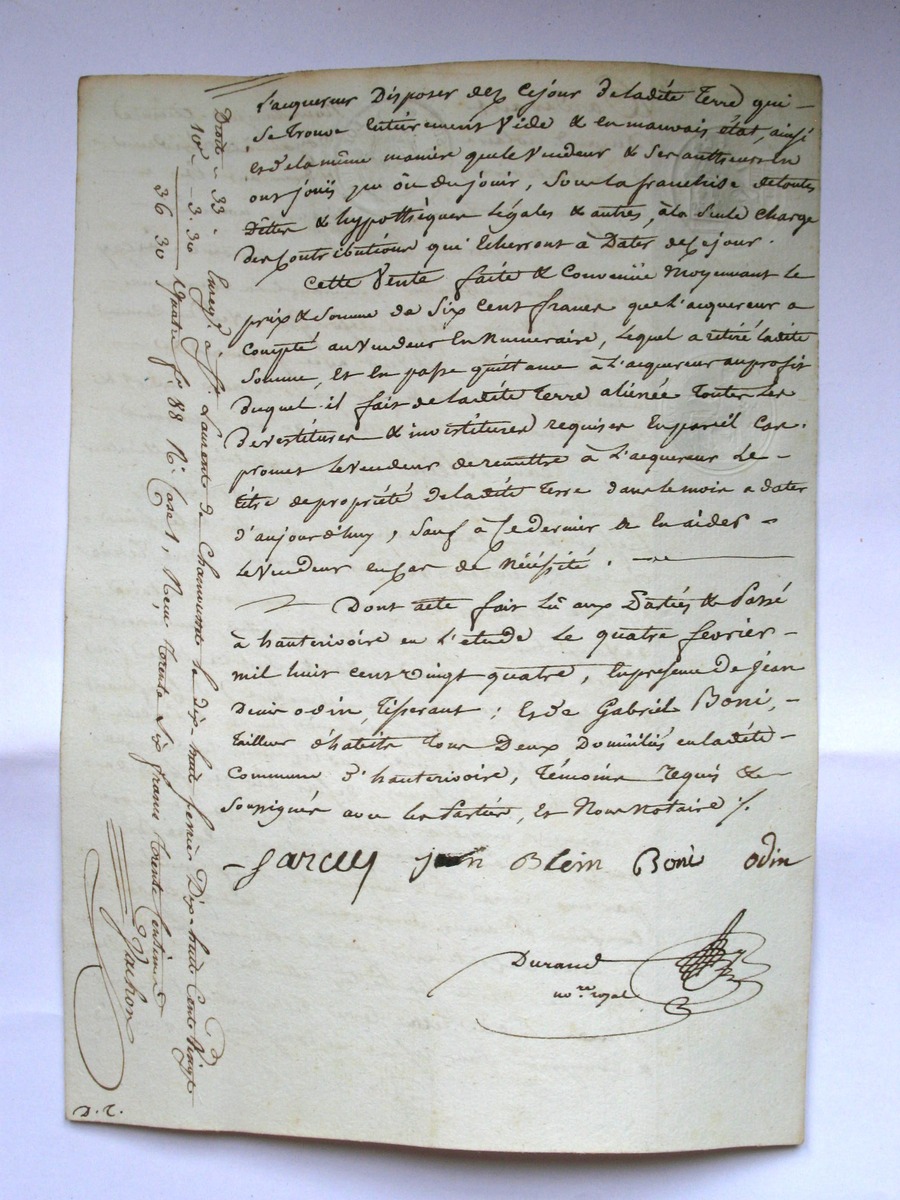 l'acquereur Disposer dez cejour deladite Terre qui -
se trouve Entierement Vide & en mauvais état, ainsi
Et de la même maniere que le Vendeur & ses autheurs en
ont jouïs pu ou du jouir, sous la franchise de toutes
Dêttes & hypothèques légales & autres, à la seule charge
des contributions qui Echerront à Dater de ce jour.
Cette Vente faite & Convenüe moyennant le
prix & somme de Six Cent francs que l'acquereur a
Compté au Vendeur En Numeraire, lequel a retiré ladite
somme, Et En passe quittance à l'acquereur au profit
Duquel il fait deladite terre aliénée toutes les
Devestitures & investitures requises En pareil Cas.
promet le vendeur de remettre à l'acquereur le -
titre de propriété deladite terre dans le mois a dater
d'aujourd'huy, sauf à ce dernier & En aider -
le Vendeur en cas de Néséssité. -
Dont acte fait Lû aux Parties & Passé
à hauterivoire en l'etude le quatre fevrier -
mil huit cent vingt quatre, En présence De jean
Denis odin, Tisserant ; Et de Gabriel Boni, -
tailleur d'habits tous Deux Domiciliés en ladite -
Commune d'hauterivoire, Témoins requis &
Soussignés avec les Parties, Et Nous Notaire ./.
Garcey jean Blein Boni odin
Durand
no.re royal
Droits - 33 -
10e - 3.30
36 30
Enregé. à St Laurent de Chamousset le dix-huit fevrier Dix-huit Cent Vingt
quatre fo. 88 Ro. Case 1, Reçu trente Six francs trente Centimes
Vachon
D.T.